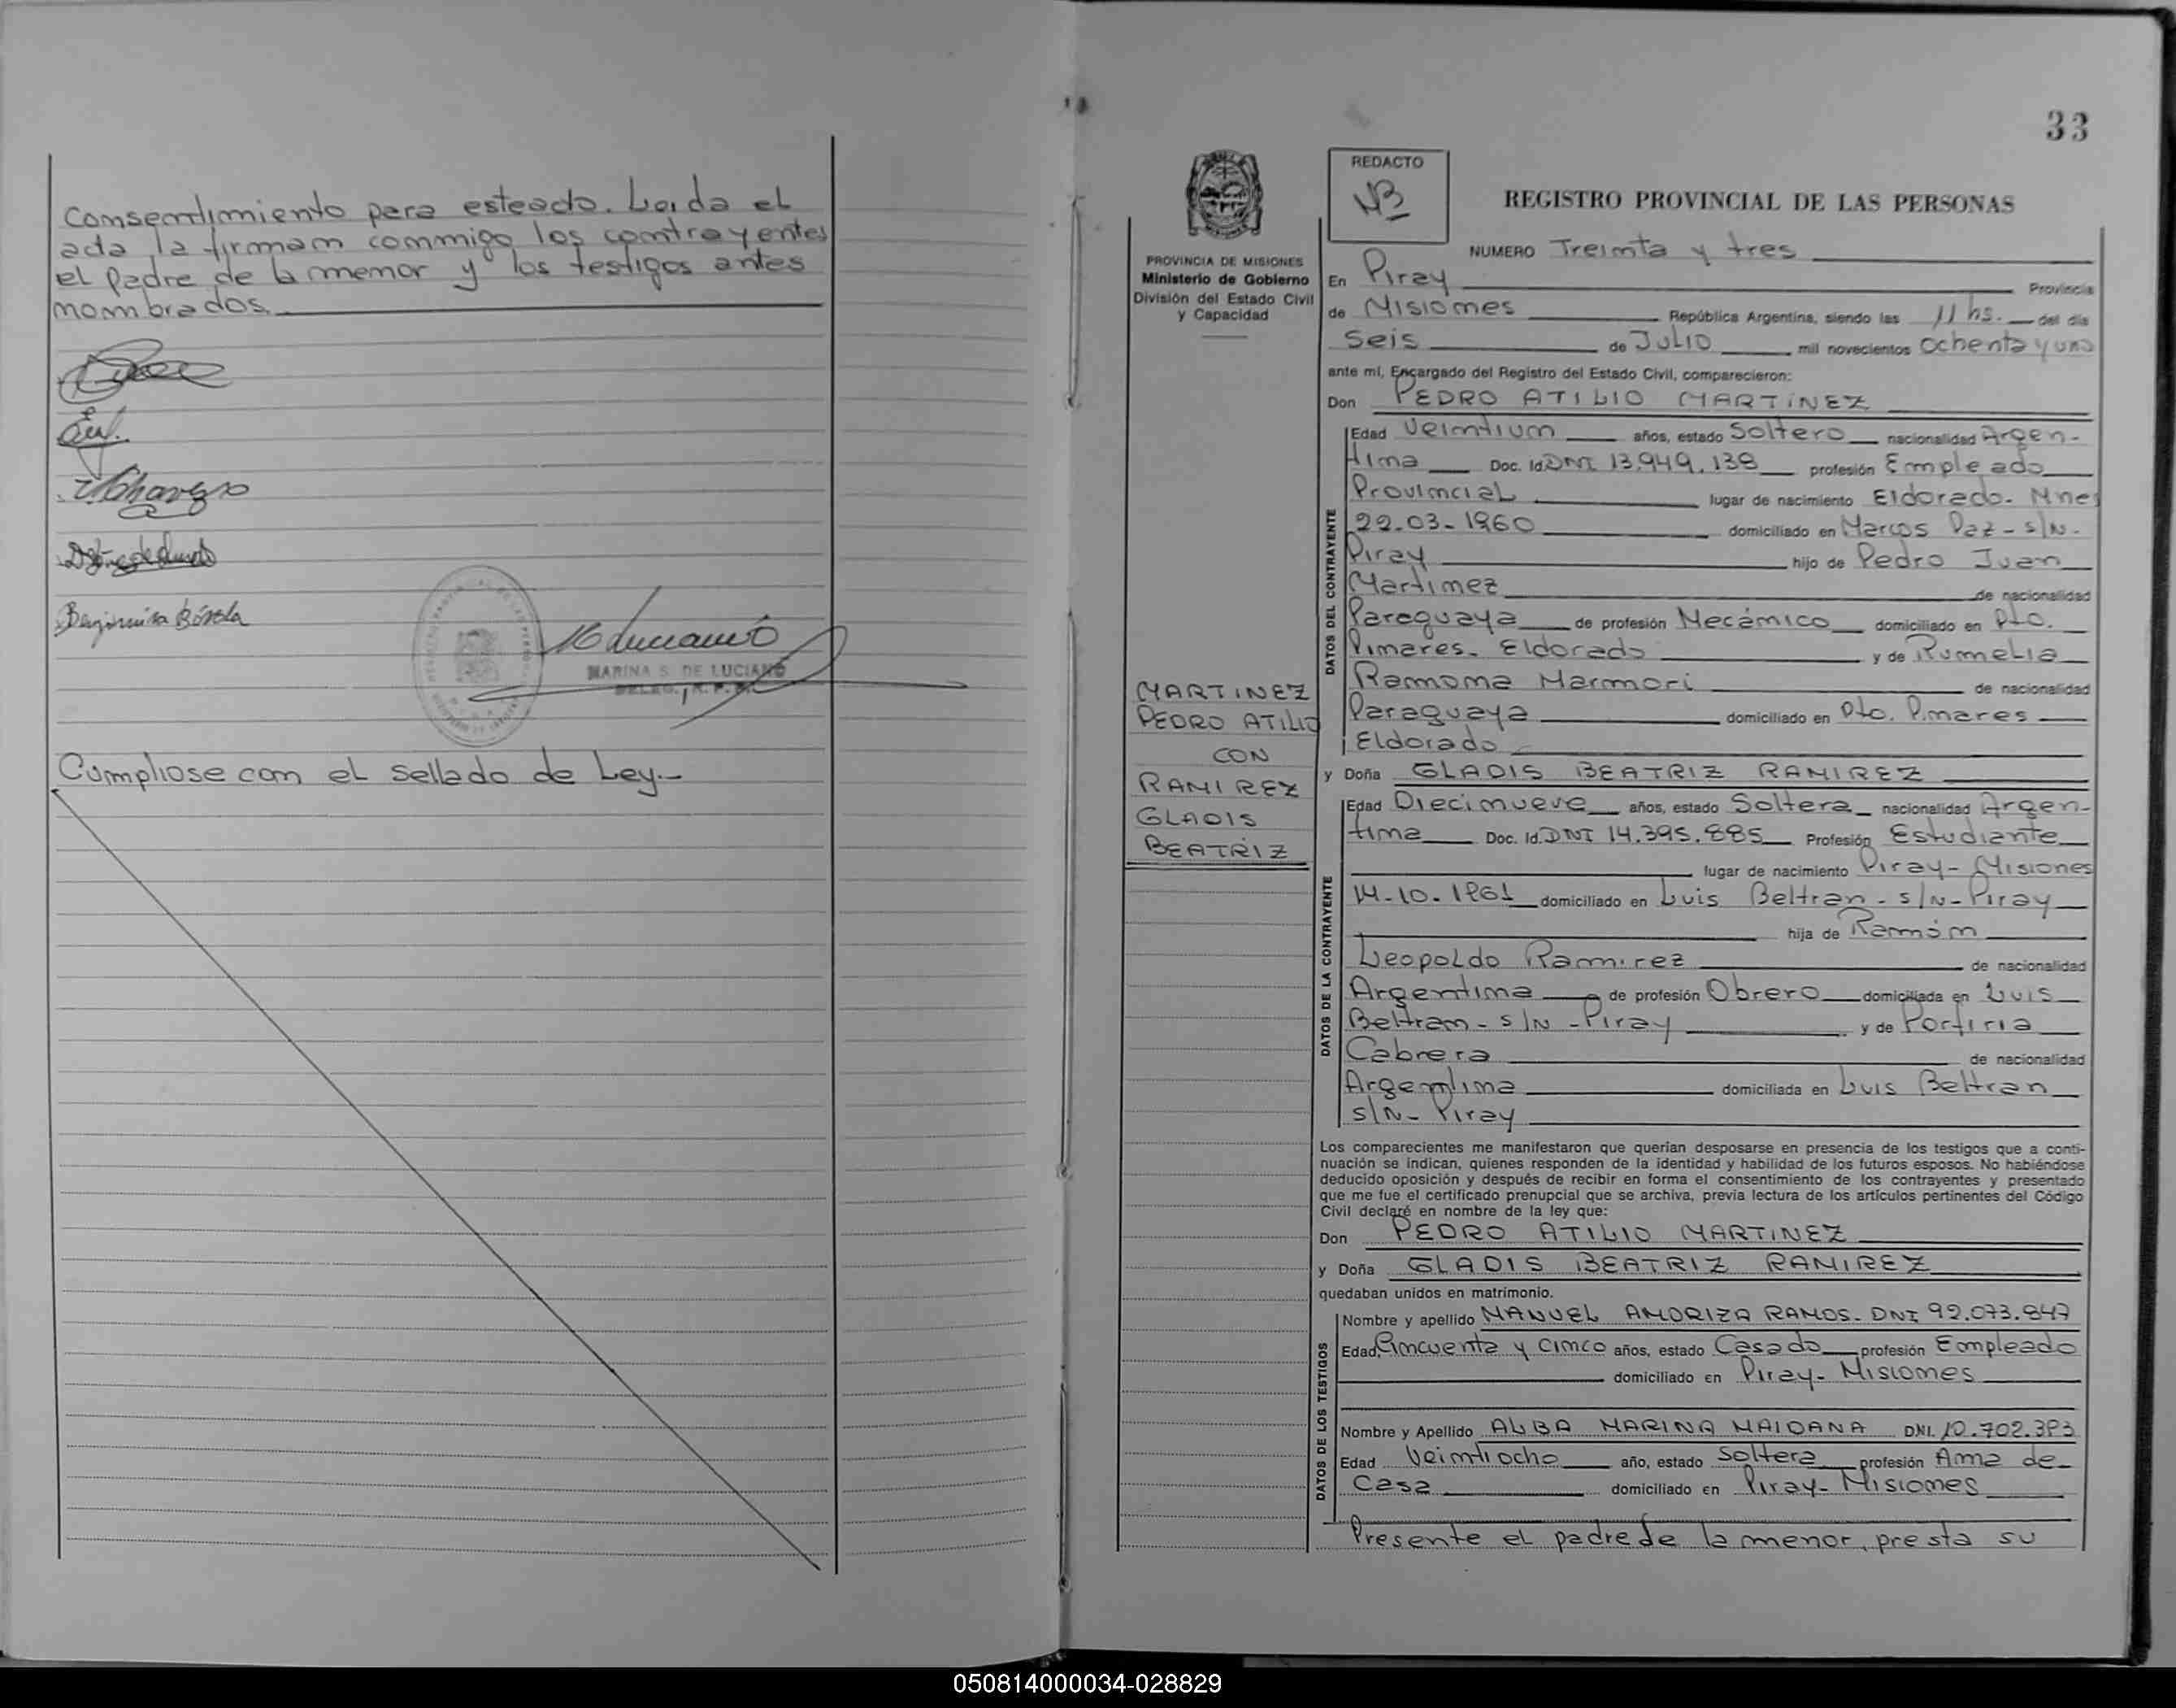 Consentimiento para esteacto. Leida el
acta la firmam conmmigo los comtrayentes
el Padre de la memor y los testigos antes
mombrados.
Benjamina Bóveda
MARINA S. DE LUCIANO
DELEG. R. P. P.
Cumpliose com el sellado de Ley.-
33
REDACTO
NB
REGISTRO PROVINCIAL DE LAS PERSONAS
NUMERO Treinta y tres
PROVINCIA DE MISIONES
Ministerio de Gobierno
División del Estado Civil
y Capacidad
MARTINEZ
PEDRO ATILIO
CON
RAMIREZ
GLADIS
BEATRIZ
En Piray Provincia
de Misiones República Argentina, siendo las 11 hs. del día
Seis de Julio mil novecientos Ochenta y uno
ante mí, Encargado del Registro del Estado Civil, comparecieron:
Don PEDRO ATILIO MARTINEZ
DATOS DEL CONTRAYENTE
Edad Veimtium años, estado Soltero nacionalidad Argen-
tima Doc. Id. DNI 13.949.138 profesión Empleado
Provimcial lugar de nacimiento Eldorado - Mnes
22-03-1960 domiciliado en Marcos Paz - s/N -
Piray hijo de Pedro Juan
Martimez de nacionalidad
Paraguaya de profesión Mecámico domiciliado en Pto.
Pimares - Eldorado y de Rumelia
Ramoma Marmori de nacionalidad
Paraguaya domiciliado en Pto. Pimares
Eldorado
y Doña GLADIS BEATRIZ RAMIREZ
DATOS DE LA CONTRAYENTE
Edad Diecimueve años, estado Soltera nacionalidad Argen-
tima Doc. Id. DNI 14.395.885 Profesión Estudiante
lugar de nacimiento Piray - Misiones
14-10-1961 domiciliado en Luis Beltran - s/N - Piray
hija de Ramóm
Leopoldo Ramirez de nacionalidad
Argentima de profesión Obrero domiciliada en Luis
Beltram - s/N - Piray y de Porfiria
Cabrera de nacionalidad
Argentima domiciliada en Luis Beltran
s/N - Piray
Los comparecientes me manifestaron que querían desposarse en presencia de los testigos que a conti-
nuación se indican, quienes responden de la identidad y habilidad de los futuros esposos. No habiéndose
deducido oposición y después de recibir en forma el consentimiento de los contrayentes y presentado
que me fue el certificado prenupcial que se archiva, previa lectura de los artículos pertinentes del Código
Civil declaré en nombre de la ley que:
Don PEDRO ATILIO MARTINEZ
y Doña GLADIS BEATRIZ RAMIREZ
quedaban unidos en matrimonio.
DATOS DE LOS TESTIGOS
Nombre y apellido MANUEL AMORIZA RAMOS - DNI 92.073.847
Edad Cimcuenta y cimco años, estado Casado profesión Empleado
domiciliado en Piray - Misiomes
Nombre y Apellido ALBA MARINA MAIDANA DNI. 10.702.393
Edad Veimtiocho año, estado Soltera profesión Ama de
Casa domiciliado en Piray - Misiomes
Presente el padre de la menor, presta su
050814000034-028829